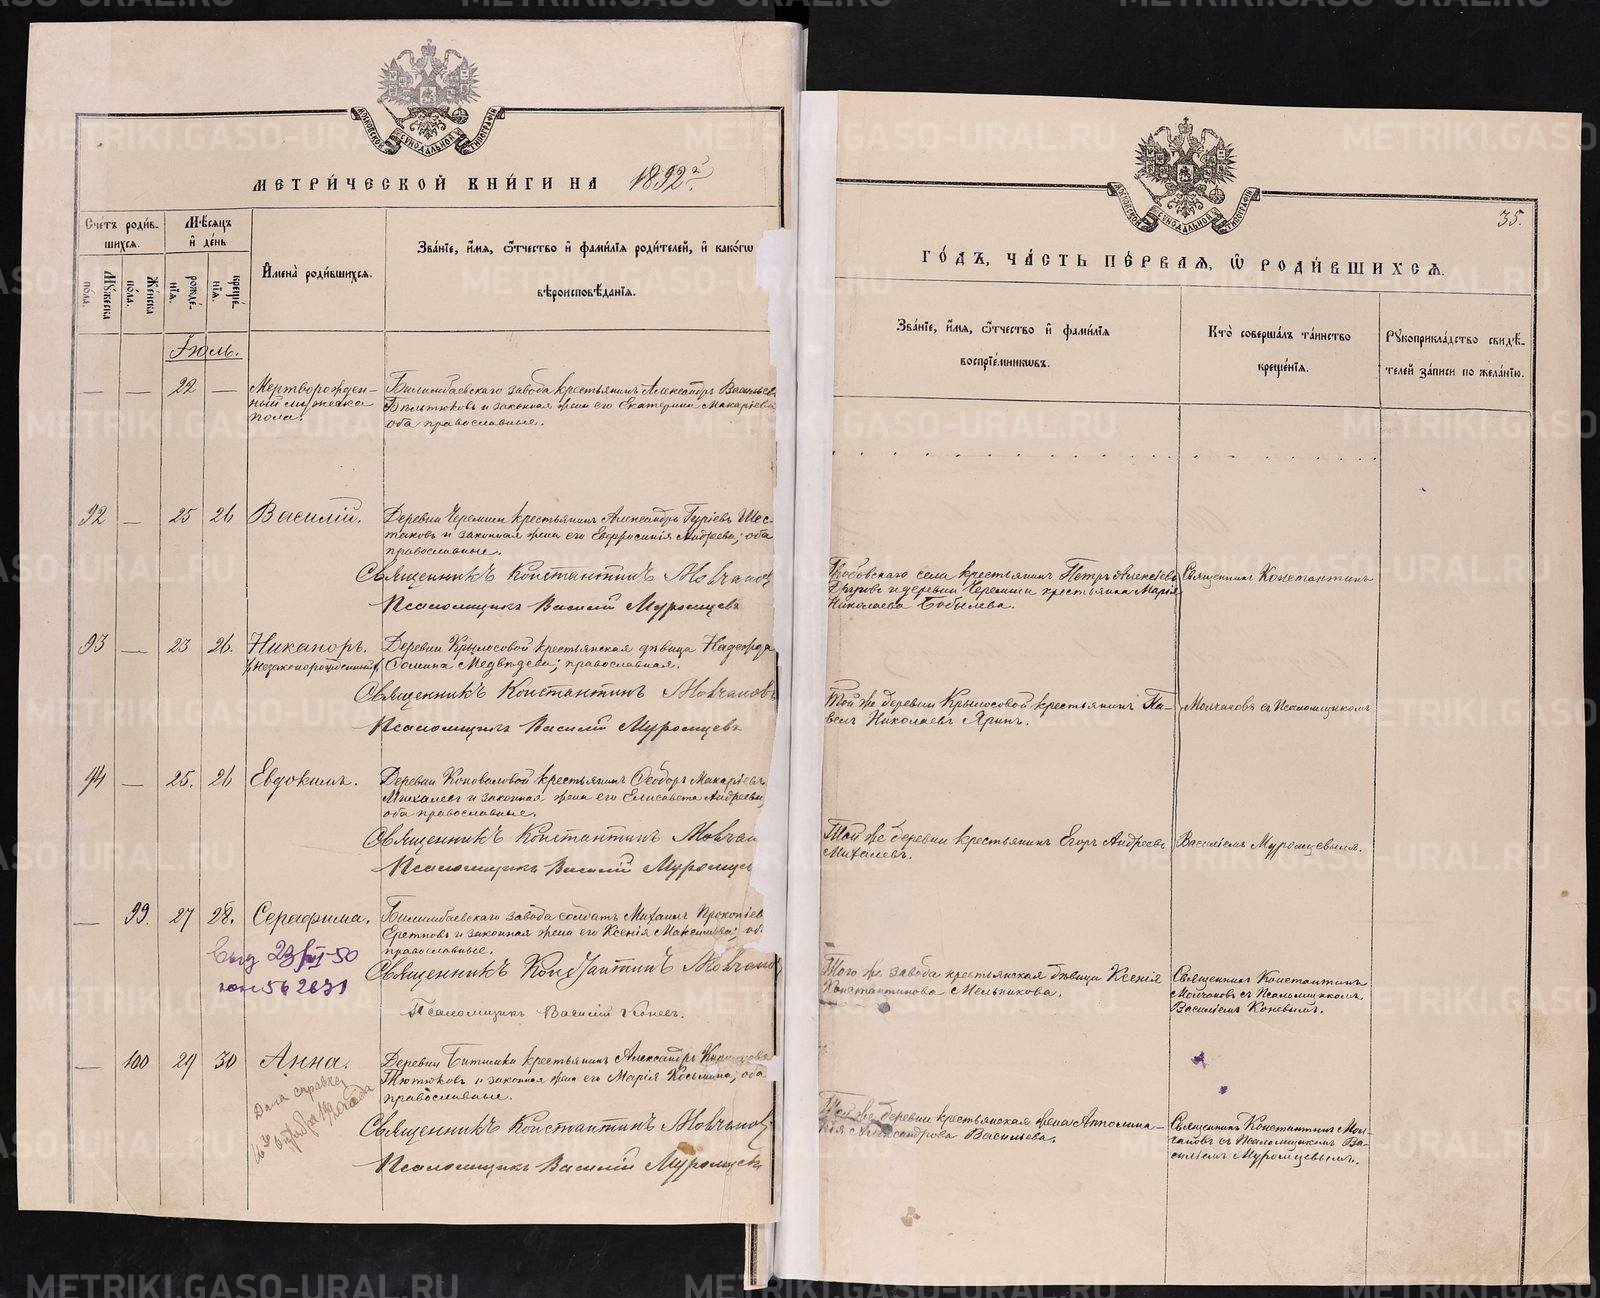 МОСКОВСКОЙ СѴНОДАЛЬНОЙ ТИПОГРАФІИ
МЕТРИ́ЧЕСКОЙ КНИ́ГИ НА 1892 г.
Сче́тъ роди́в-
шихся.
Мѣ́сяцъ
и҆ де́нь
Мꙋ́жеска по́ла.
Же́нска по́ла.
рожде́-
нїѧ.
креще́-
нїѧ.
И҆мена̀ роди́вшихсѧ.
Зва́нїе, и҆́мѧ, ѻ҆́тчество и҆ фами́лїѧ роди́телей, и҆ како́гѡ
вѣроисповѣ́данїѧ.
Іюль.
— — 22 — Мертворожден-
ный мужеска
пола.
Билимбаевскаго завода крестьянинъ Александръ Васильев
и законная жена его Екатерина Макарьева
оба православные.
92 — 25 26 Василій.
Деревни Черемши крестьянинъ Александръ Гуріевъ Шес-
таковъ и законная жена его Евфросинія Андреева; оба
православные.
Священникъ Константинъ Молчанов
Псаломщикъ Василій Муромцевъ
93 — 23 26. Никаноръ.
(незаконорожденный)
Деревни Крылосовой крестьянская дѣвица Надежда
Фомина Медвѣдева; православная.
Священникъ Константинъ Молчановъ
Псаломщикъ Василій Муромцевъ
94 — 25. 26 Евдокимъ.
Деревни Коноваловой крестьянинъ Ѳеодоръ Макаріевъ
Михалевъ и законная жена его Елисавета Андреева,
оба православные.
Священникъ Константинъ Молчан
Псаломщикъ Василій Муромцев
— 99. 27 28. Серафима.
Билимбаевскаго завода солдатъ Михаилъ Прокопіев
и законная жена его Ксенія Максимова; об
православные.
Священникъ Константинъ Молчанов
Псаломщикъ Василій Коневъ.
— 100 29 30 Анна.
Деревни Битимки крестьянинъ Александръ
Тютюковъ и законная жена его Марія Козьмина; оба
православные.
Дана справка
Священникъ Константинъ Молчановъ
Псаломщикъ Василій Муромцевъ
МОСКОВСКОЙ СѴНОДАЛЬНОЙ ТИПОГРАФІИ
35.
ГО́ДЪ, ЧА́СТЬ ПЕ́РВАѦ, Ѡ҆ РОДИ́ВШИХСѦ.
Зва́нїе, и҆́мѧ, ѻ҆́тчество и҆ фами́лїѧ
воспрїе́мникѡвъ.
Кто̀ соверша́лъ та́инство
креще́нїѧ.
Рꙋкоприкла́дство свидѣ́-
телей за́писи по жела́нїю.
села крестьянинъ Петръ Алексіевъ
и деревни Черемши крестьянка Марія
Николаева Бобылева.
Священникъ Константинъ
Той же деревни Крылосовой крестьянинъ Па-
велъ Николаевъ Яринъ.
Молчановъ съ Псаломщикомъ
Той же деревни крестьянинъ Егоръ Андреевъ
Михалевъ.
Василіемъ Муромцевымъ.
Того же завода крестьянская дѣвица Ксенія
Константинова Мельникова.
Священникъ Константинъ
Молчановъ съ Псаломщикомъ
Василіемъ Коневымъ.
Той же деревни крестьянская жена Апполина-
рія Александрова Васильева.
Священникъ Константинъ Мол-
чановъ съ Псаломщикомъ Ва-
силіемъ Муромцевымъ.
METRIKI.GASO-URAL.RU